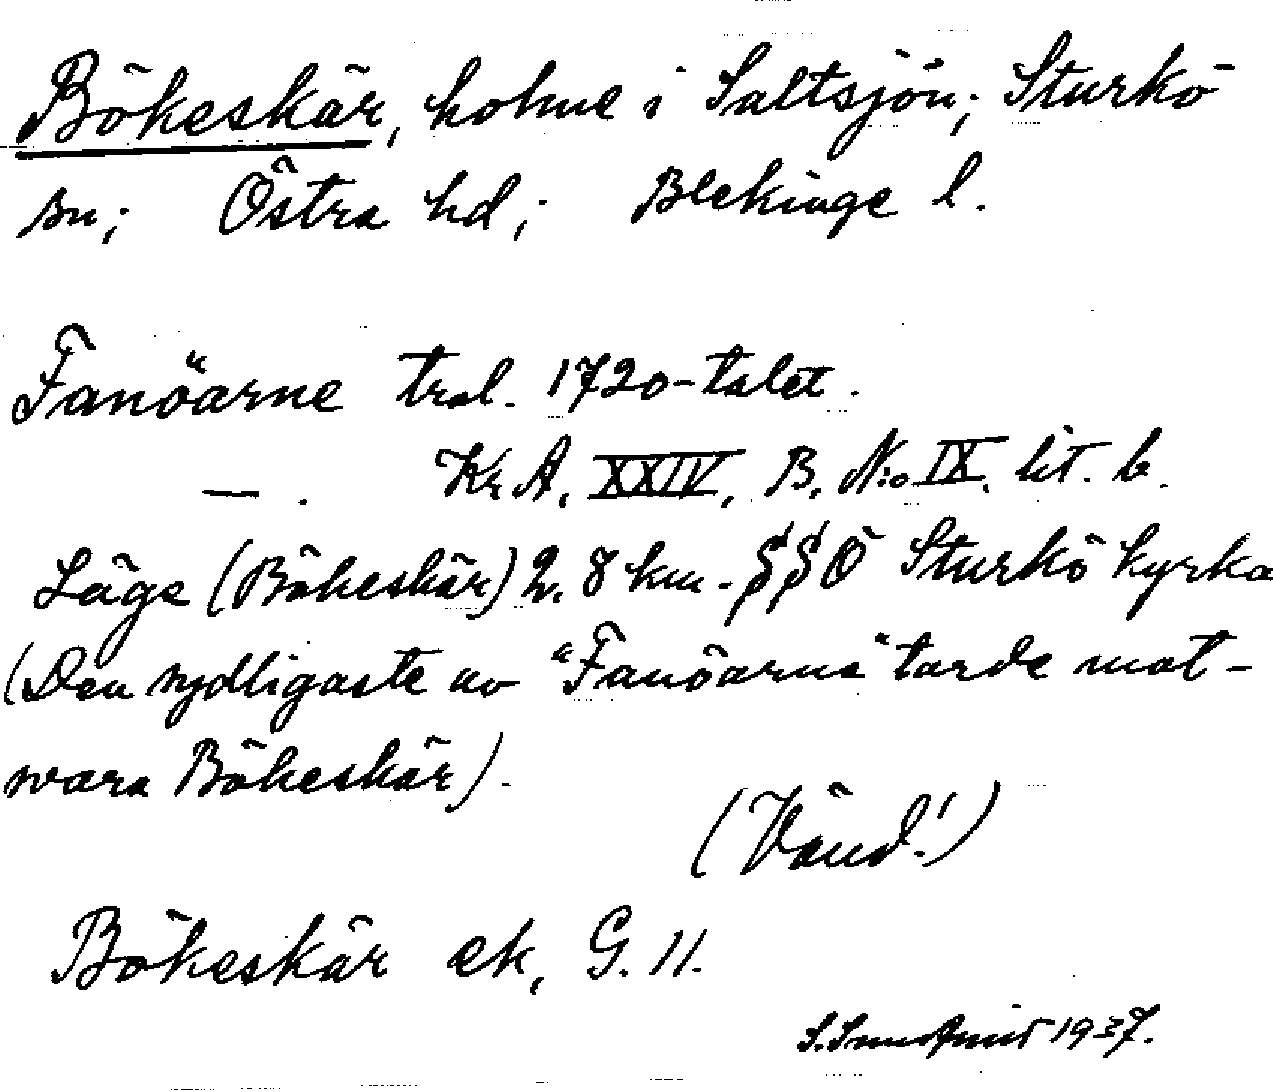 Bökeskär, holme i Saltsjön; Sturkö
sn; Östra hd; Blekinge l.
Fanöarne trol. 1720-talet.
— . Kr.A. XXIV, B. N:o IX. lit. b.
Läge (Bökeskär) 2.8 km. SSÖ Sturkö kyrka
(Den sydligaste av "Fanöarne" torde mot-
svara Bökeskär).
(Vänd!)
Bökeskär ek, G. 11.
S. 1937.